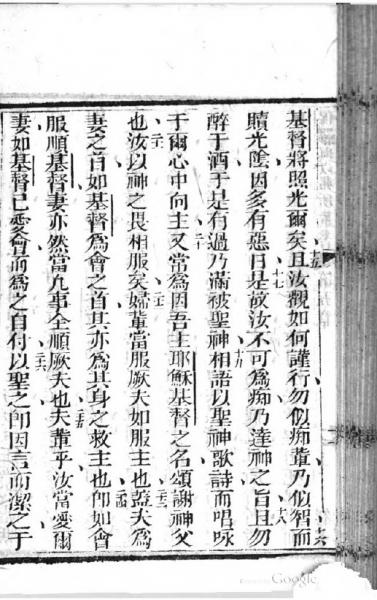 基督將照光爾矣且汝觀如何謹行勿似痴輩乃似智而
贖光陰因多有惡日是故汝不可為痴乃達神之旨且勿
醉于酒于是有過乃滿被聖神相語以聖神歌詩而唱咏
于爾心中向主又常為因吾主耶穌基督之名頌謝神父
也汝以神之畏相服矣婦輩當服厥夫如服主也蓋夫為
妻之首如基督為會之首其亦為其身之救主也卽如會
服順基督妻亦然當凡事全順厥夫也夫輩乎汝當愛爾
妻如基督已愛會而為之自付以聖之卽因言而潔之于
十五
十六
十七
十八
十九
二十
二一
二二
二三
二四
二五
二六
Google